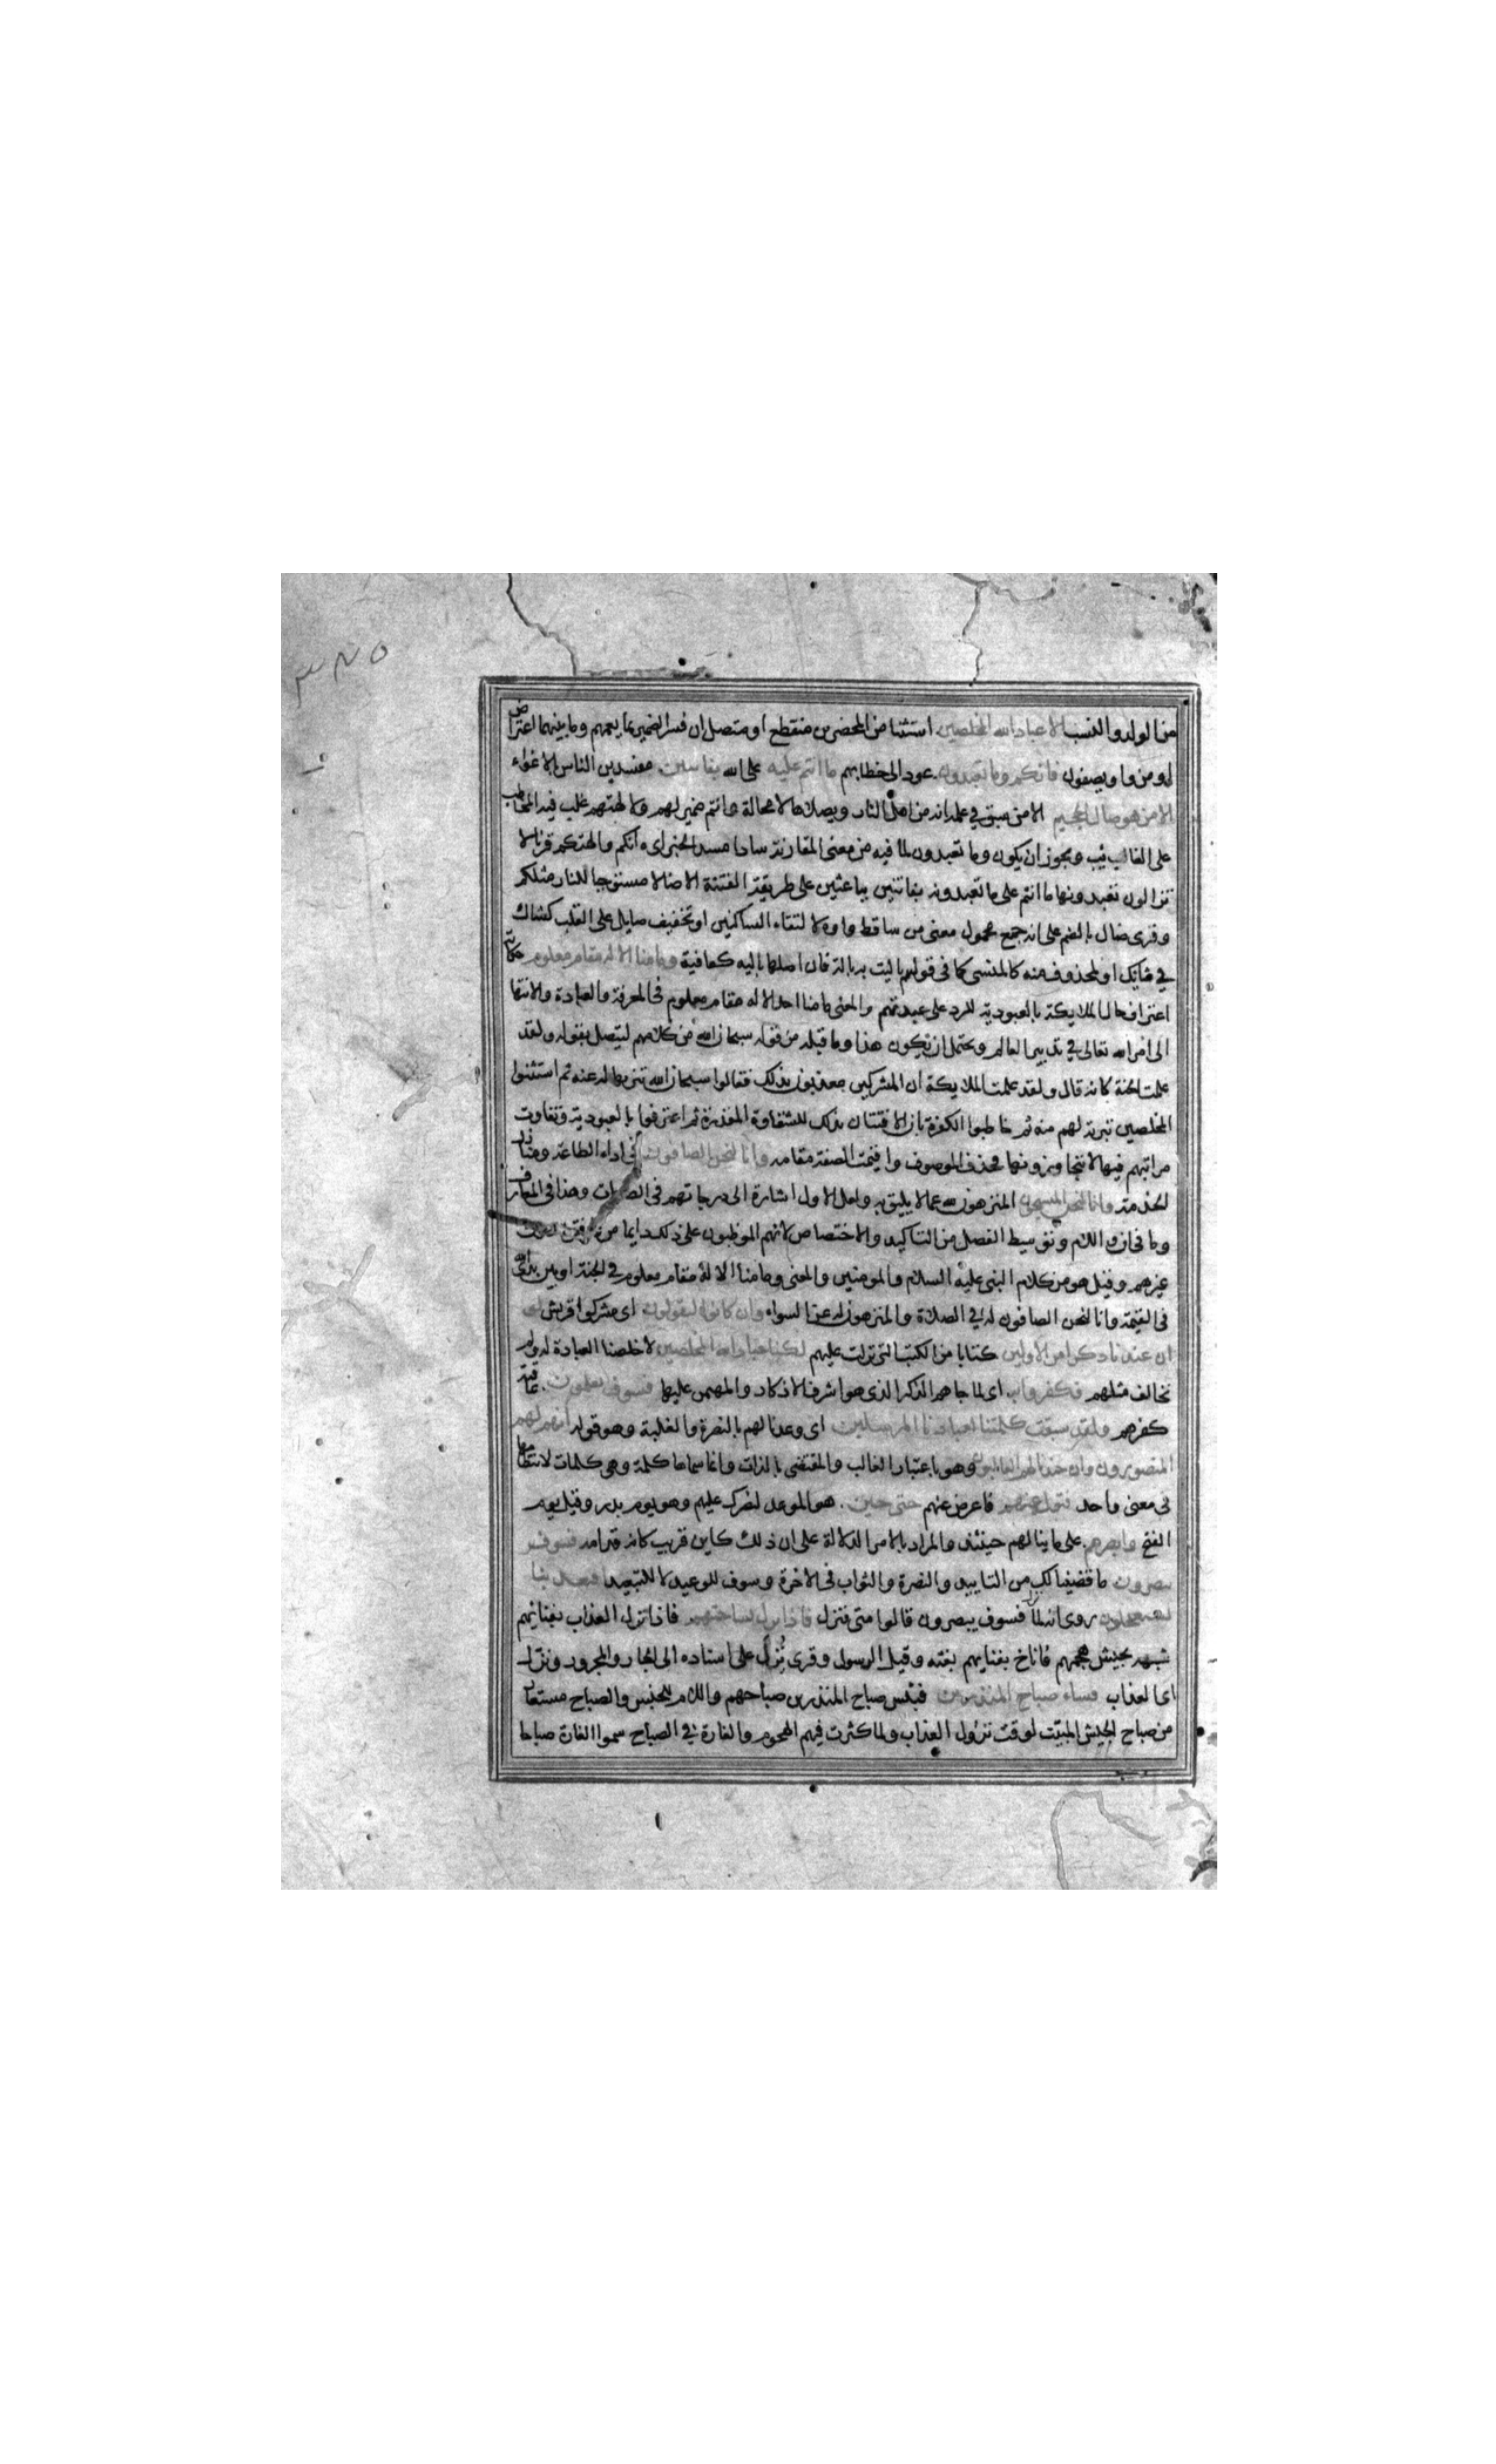 من الولد والنسب الا عباد الله المخلصين استثنا من المحضرين منقطع او متصل ان فسر الضمير بما يعمهم وما بينهما اعتراض
او من واو يصفون فانكم وما تعبدون عود الى خطابهم ما انتم عليه على الله بفاتنين مفسدين الناس بالاغواء
الا من هو صال الجحيم الا من سبق في علمه انه من اهل النار ويصلاها لا محالة وانتم ضمير لهم ولالهتهم غلب فيه المخاطب
على الغائب ويجوز ان يكون وما تعبدون لما فيه من معنى المقارنة سادا مسد الخبر اى انكم والهتكم قرنا لا
تزالون تعبدونها ما انتم على ما تعبدونه بفاتنين بباعثين على طريقة الفتنة الا ضالا مستوجبا للنار مثلكم
وقرى صال بالضم على انه جمع محمول معنى من ساقط واوه لالتقاء الساكنين او تخفيف صايل على القلب كشاك
في شايك او المحذوف منه كالمنسى كما فى قولهم ما باليت به بالة فان اصلها بالية كعافية وما منا الا له مقام معلوم حكاية
اعتراف الملايكة بالعبودية للرد على عبدتهم والمعنى ما منا احد الا له مقام معلوم فى المعرفة والعبادة والانتها
الى امر الله تعالى في تدبير العالم ويحتمل ان يكون هذا وما قبله من قوله سبحان الله من كلامهم ليتصل بقوله ولقد
علمت الجنة كانه قال ولقد علمت الملايكة ان المشركين معذبون بذلك فقالوا سبحان الله تنزيها له عنه ثم استثنوا
المخلصين تبرئة لهم منه ثم خاطبوا الكفرة بان الافتتان بذلك للشقاوة المقدرة ثم اعترفوا بالعبودية وتفاوت
مراتبهم فيها لا يتجاوزونها فحذف الموصوف واقيمت الصفة مقامه وانا لنحن الصافون في اداء الطاعة ومنازل
الخدمة وانا لنحن المسبحون المنزهون الله عما لا يليق به ولعل الاول اشارة الى درجاتهم فى الطاعات وهذا فى المعارف
وما فى ان واللام وتوسيط الفصل من التاكيد والاختصاص لانهم المواظبون على ذلك دايما من غير فترة دون
غيرهم وقيل هو من كلام النبى عليه السلام والمومنين والمعنى وما منا الا له مقام معلوم في الجنة او بين يدى الله
فى القيمة وانا لنحن الصافون له في الصلاة والمنزهون له عن السواء وان كانوا ليقولون اى مشركوا قريش لو
ان عندنا ذكرا من الاولين كتابا من الكتب التى نزلت عليهم لكنا عباد الله المخلصين لاخلصنا العبادة له ولم
نخالف مثلهم فكفروا به اى لما جاهم الذكر الذى هو اشرف الاذكار والمهيمن عليها فسوف يعلمون عاقبة
كفرهم ولقد سبقت كلمتنا لعبادنا المرسلين اى وعدنا لهم بالنصرة والغلبة وهو قوله انهم لهم
المنصورون وان جندنا لهم الغالبون وهو باعتبار الغالب والمقتضى بالذات وانما سماها كلمة وهى كلمات لانتظامها
فى معنى واحد فتول عنهم فاعرض عنهم حتى حين هو الموعد لنصرك عليهم وهو يوم بدر وقيل يوم
الفتح وابصرهم على ما ينالهم حينئذ والمراد بالامر الدلالة على ان ذلك كاين قريب كانه قدامه فسوف
يبصرون ما قضينا لك من التاييد والنصرة والثواب فى الاخرة وسوف للوعيد لا للتبعيد افبعذابنا
يستعجلون روى انه لما نزل فسوف يبصرون قالوا متى فنزل فاذا نزل بساحتهم فاذا نزل العذاب بفنائهم
شبهه بجيش هجمهم فاناخ بفنايهم بغتة وقيل الرسول وقرى نزل على اسناده الى الجار والمجرور ونزل
اى العذاب فساء صباح المنذرين فبئس صباح المنذرين صباحهم واللام للجنس والصباح مستعار
من صباح الجيش المبيت لوقت نزول العذاب ولما كثرت فيهم الهجوم والغارة في الصباح سموا الغارة صباحا